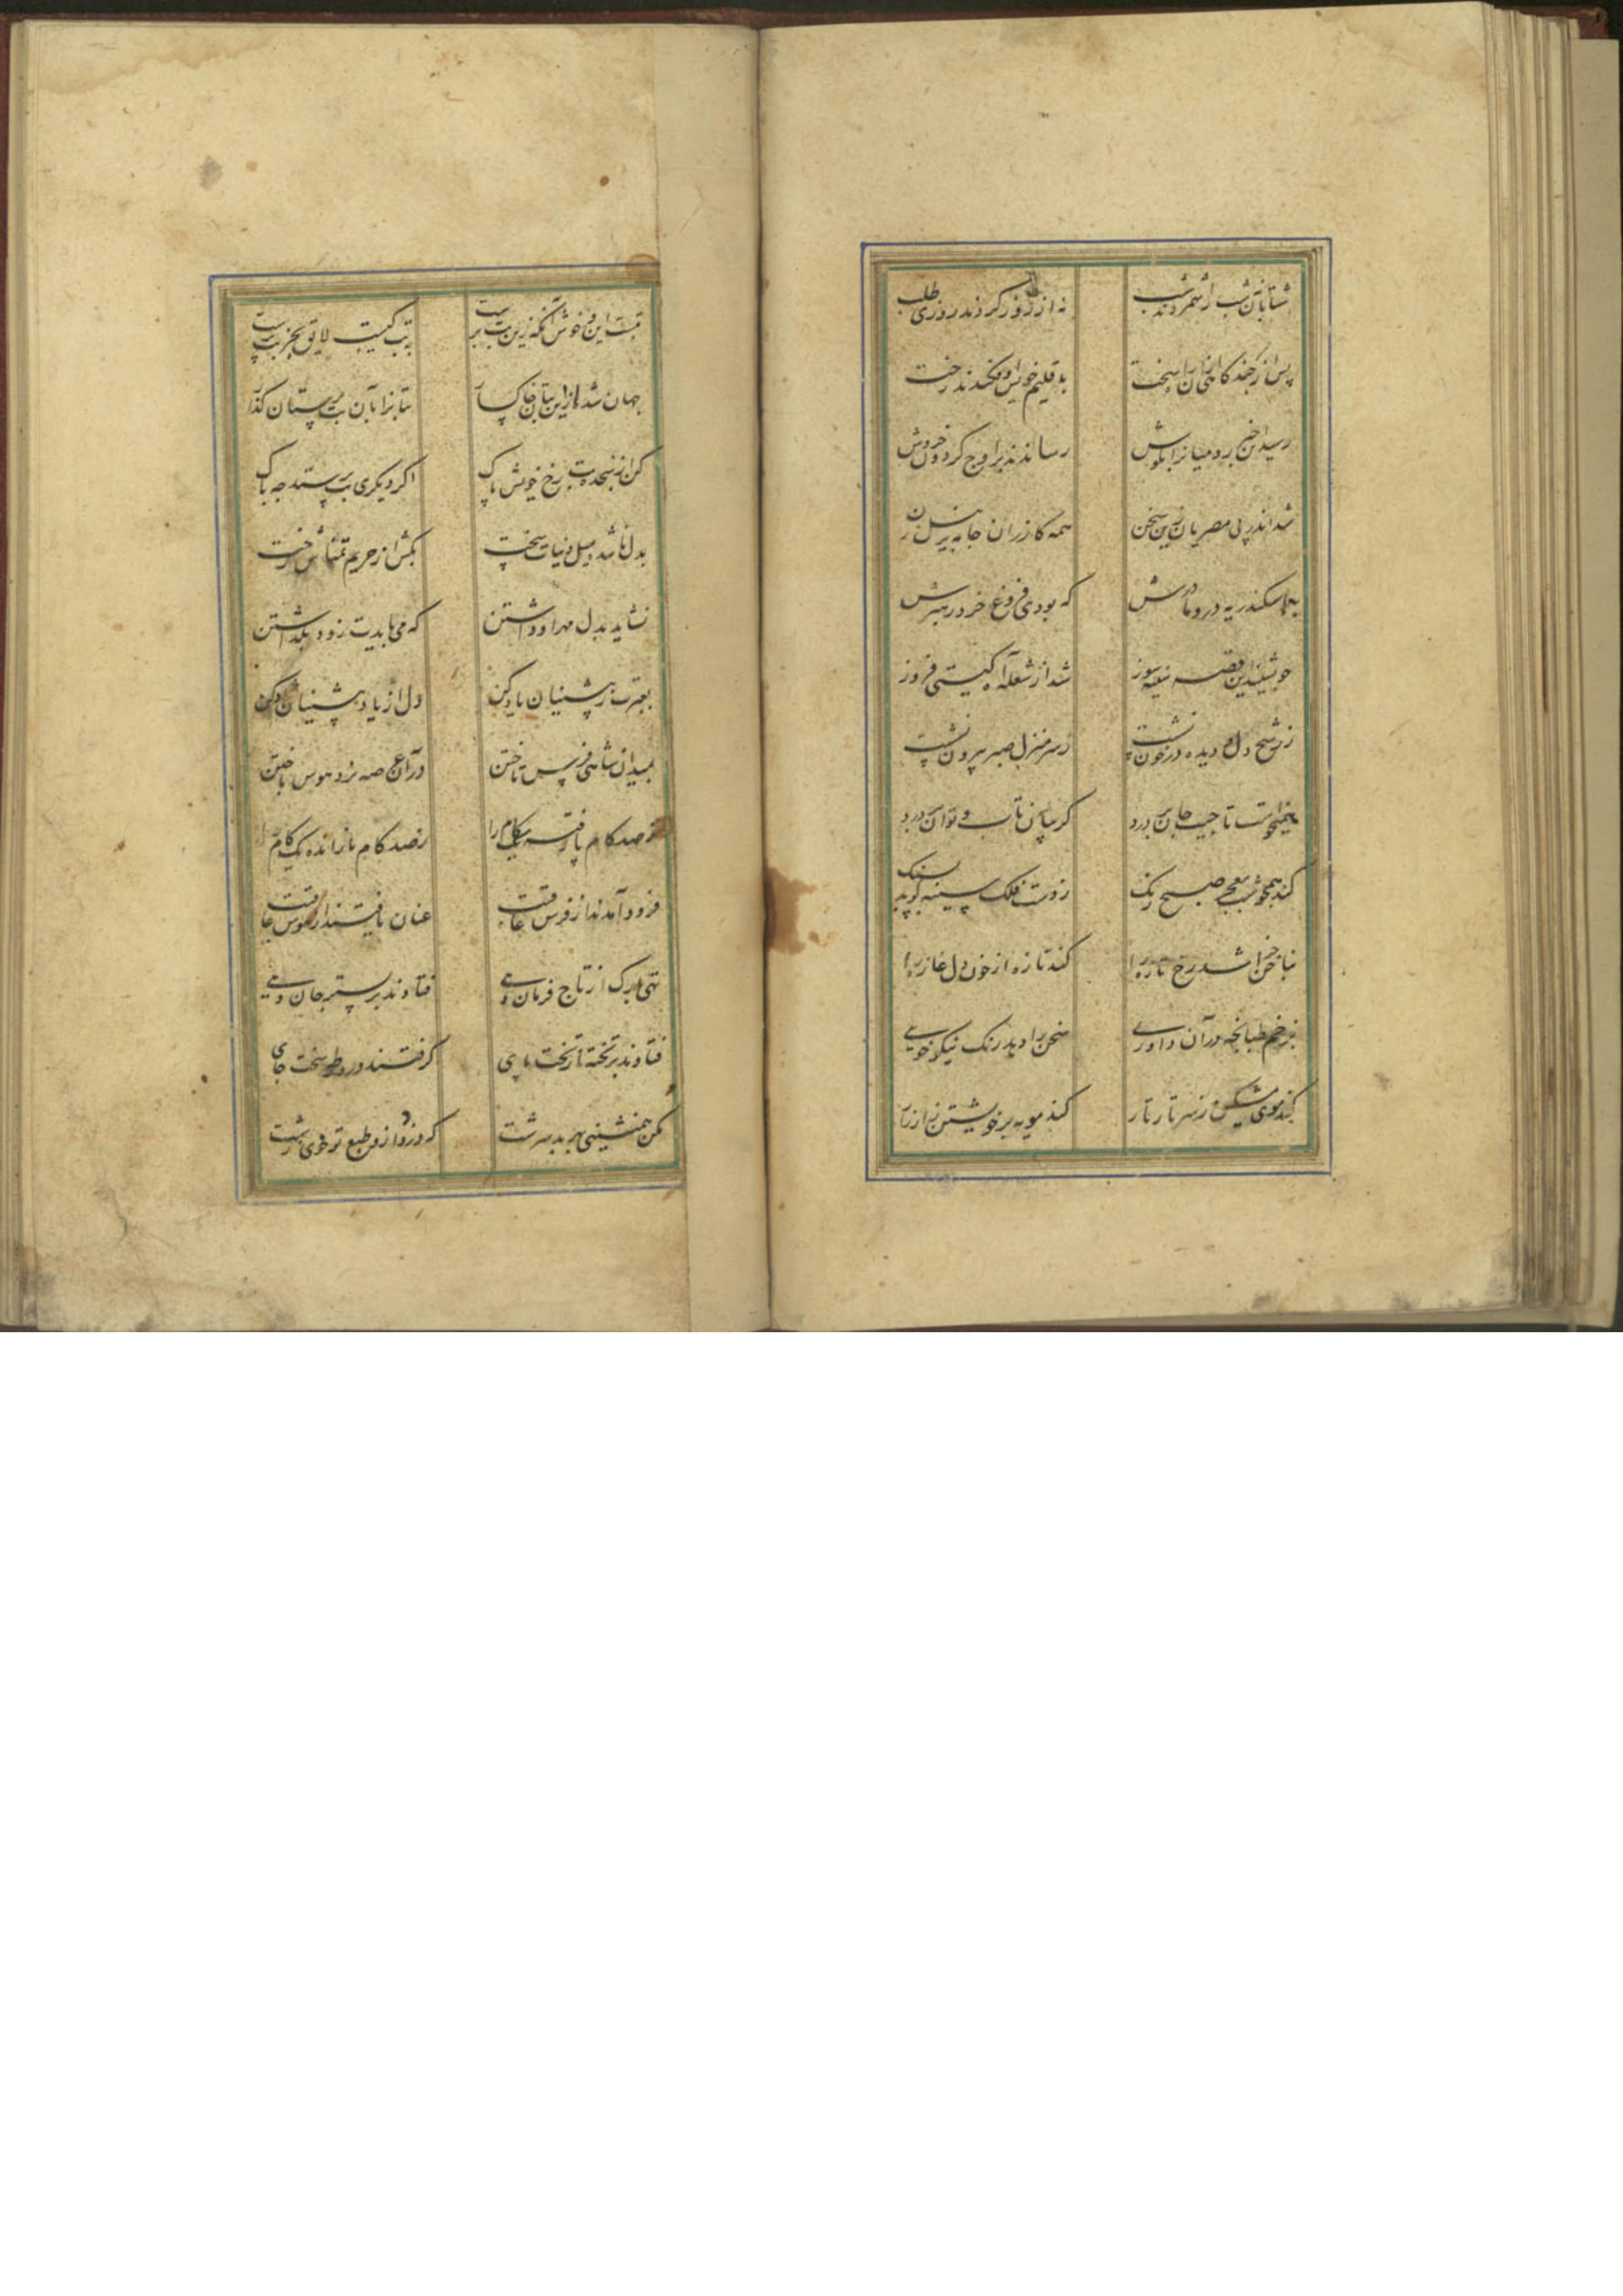 شتابان شب از شب
نه از روز کردند روزی طلب
پس از چند
به اقلیم خویش اوفکندند رخت
رسید این خبر رومیان را بگوش
رساندند بر اوج گردون خروش
شد اندر پی مصریان این سخن
همه کازران جامه بر نیل زن
به اسکندریه درو مادرش
که بودی فروغ خرد رهبرش
چو بشنید این قصه سینه سوز
شد از شعله آه گیتی فروز
ز رشح دل و دیده در خون نشست
ز سرمنزل صبر بیرون نشست
همیخواست تا جیب جان بر درد
گریبان تاب و توان بر درد
کند همچو شب معجر صبح رنگ
ز دست فلک سینه کوبد بسنگ
بناخن خراشد رخ تازه را
کند تازه از خون دل غازه را
بزخم طبانچه در آن داوری
سمن را دهد رنگ نیلوفری
کند موی مشکین ز سر تار تار
کند مویه بر خویشتن زار زار
بتست این و خوش آنکه زین بت برست
نه بت کیست لایق بجز بت پرست
جهان شد از این بتان خاکسار
بتانرا بآن بت پرستان گذار
مکن رنجه دست رخ خویش پاک
اگر دیگری بت پرستد چه باک
بدل باشدت میل دنیات سخت
بکش از حریم تمناش رخت
نشاید بدل مهر او داشتن
که می بایدت زود بگذاشتن
بعبرت ز پیشینیان یاد کن
دل از یاد پیشینیان شاد کن
بمیدان شاهی فرس تاختن
در آن عرصه نرد هوس باختن
ز صد کام نایافته کام را
ز صد کام نارانده یک کام را
فرود آمدند از فرس عاقبت
عنان تافتند از هوس عاقبت
تهی تارک از تاج فرماندهی
فتادند بر بستر جان دهی
فتادند بر تخته از تخت پای
گرفتند در ورطه سخت جای
مکن همنشینی بهر بد سرشت
که دزدد ازو طبع تو خوی زشت